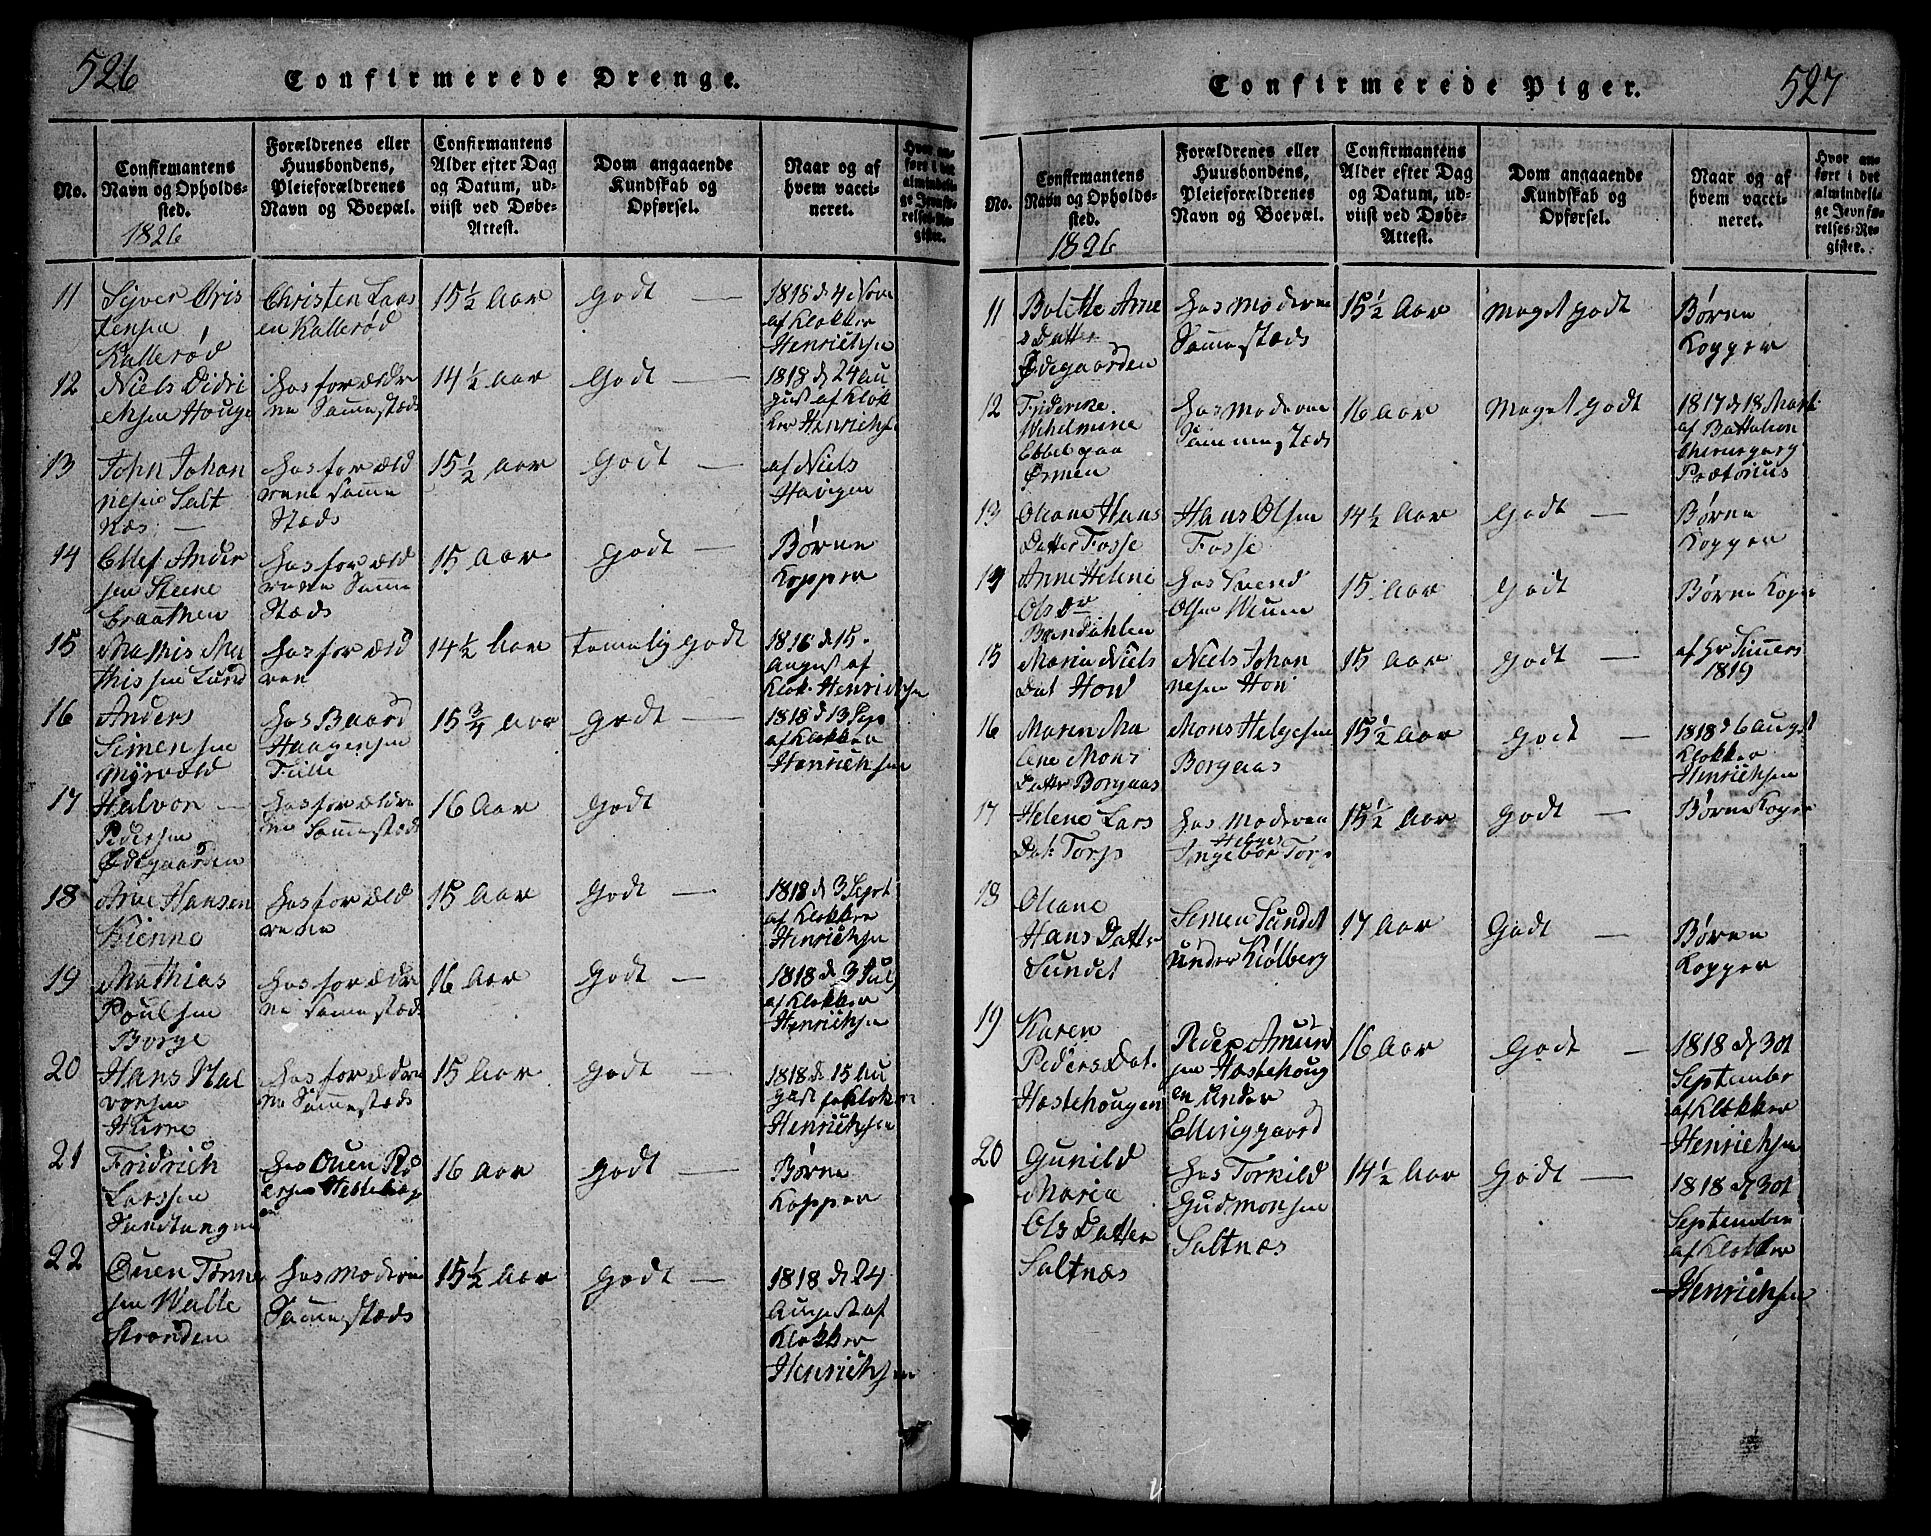 526
Confirmerede Drenge.
No.
Confirmantens
Navn og Opholds-
sted.
1826
Forældrenes eller
Huusbondens,
Pleieforældrenes
Navn og Boepæl.
Confirmantens
Alder efter Dag
og Datum, ud-
viist ved Døbe-
Attest.
Dom angaaende
Kundskab og
Opførsel.
Naar og af
hvem vacci-
neret.
Hvor an-
ført i det
almindeli-
ge Jevnfø-
relses-Re-
gister.
11
Sÿver Cris
tensen
Kallerød
Christen Lars
en Kallerød
15½ Aar
Godt —
1818 d 4 Nove
af Klokker
Henrichsen
12
Niels Didri
chsen Houge
hos forældre
ne Sammestæds
14½ Aar
Godt —
1818 d 24 Au
gust af Klok
ker Henrichse
13
John Johan
nesen Salt
næs —
hos foræld
rene samme
Stæds
15½ Aar
Godt —
af Niels
Havigen
14
Ellef Ander
sen Steene
braathen
hos foræld
rene Samme
Stæds
15 Aar
Godt —
Børne
Kopper
15
Mathis Ma
thissen Lund
hos foræld
ren
14½ Aar
temelig godt
1816 d 15.
August af
Klok. Henrichsen
16
Anders
Simensen
Myrvold
hos Baard
Haagensen
Fulle
15¾ Aar
Godt —
1818 d 13 Sep
af Klokker
Henrichsen
17
Halvor —
Pedersen
Ødegaarden
hos forældre
ne Sammestæds
16 Aar
Godt
18
Arne Hansen
Kienne
hos foræld
rene
15 Aar
Godt —
1818 d 3 Sept
af Klokker
Henrichsen
19
Mathias
Poulsen
Borge
hos forældre
ne Sammestæds
16 Aar
Godt —
1818 d 3 Jul
af Klokker
Henrichsen
20
Hans Hal
vorsen
Hurre
hos forældre
ne Sammestæds
15 Aar
Godt —
1818 d 15 Au
gust Klokker
Henrichsen
21
Fridrich
Larssen
Sandtangen
hos Ouen Pe
ersen
en
16 Aar
Godt —
Børne
Kopper
22
Ouen Tønne
sen Walle
Stranden
hos Moderen
Sammestæds
15½ Aar
Godt —
1818 d 24
August af
Klokker
Henrichsen
527
Confirmerede Piger.
No.
Confirmantens
Navn og Opholds-
sted.
1826
Forældrenes eller
Huusbondens,
Pleieforældrenes
Navn og Boepæl.
Confirmantens
Alder efter Dag
og Datum, ud-
viist ved Døbe-
Attest.
Dom angaaende
Kundskab og
Opførsel.
Naar og af
hvem vacci-
neret.
Hvor an-
ført i det
almindeli-
ge Jevnfø-
relses-Re-
gister.
11
Bolette Arne
s Datter
Ødegaarden
hos Moderen
Sammestæds
15½ Aar
Meget godt
Børne
Kopper
12
Friderike
Wilhelmine
Ebbel paa
Ørmen
hos Moderen
Sammestæds
16 Aar
Meget godt
1817 d 18 Mart
af Battalion
Chirurgus
Prætorius
13
Oliane Hans
Datter Fosse
Hans Olsen
Fosse
14½ Aar
Godt —
Børne
Kopper
14
Anne Helene
Ols Dr
Brandahlen
hos Svend
Olsen Muum
15 Aar
Godt
Børne Koper
15
Maria Niels
Dat Hov
Niels Johan
nesen Hov
15 Aar
Godt —
af Hr Siuers
1819
16
Maren Ma
lene Mons
Datter Borgaas
Mons Helgesen
Borgaas
15½ Aar
Godt —
1818 d 6 Augst
Klokker
Henrichsen
17
Helene Lars
Dat. Torp
hos Moderen
Helges
Ingebor Torp
15½ Aar
Godt —
Børne Koper
18
Oliane
Hans Datter
Sundet
Simen Sundet
under Kiølberg
17 Aar
Godt —
Børne
Kopper
19
Karen
Peders Dat.
Hestehougen
Peder Amund
sen Hestehoug
en under
Ellinggaard
16 Aar
Godt —
1818 d 30t
September
af Klokker
Henrichsen
20
Gunild
Maria
Ols Datter
Saltnæs
hos Torkild
Gudmonsen
Saltnæs
14½ Aar
Godt —
1818 d 30t
September
af Klokker
Henrichsen